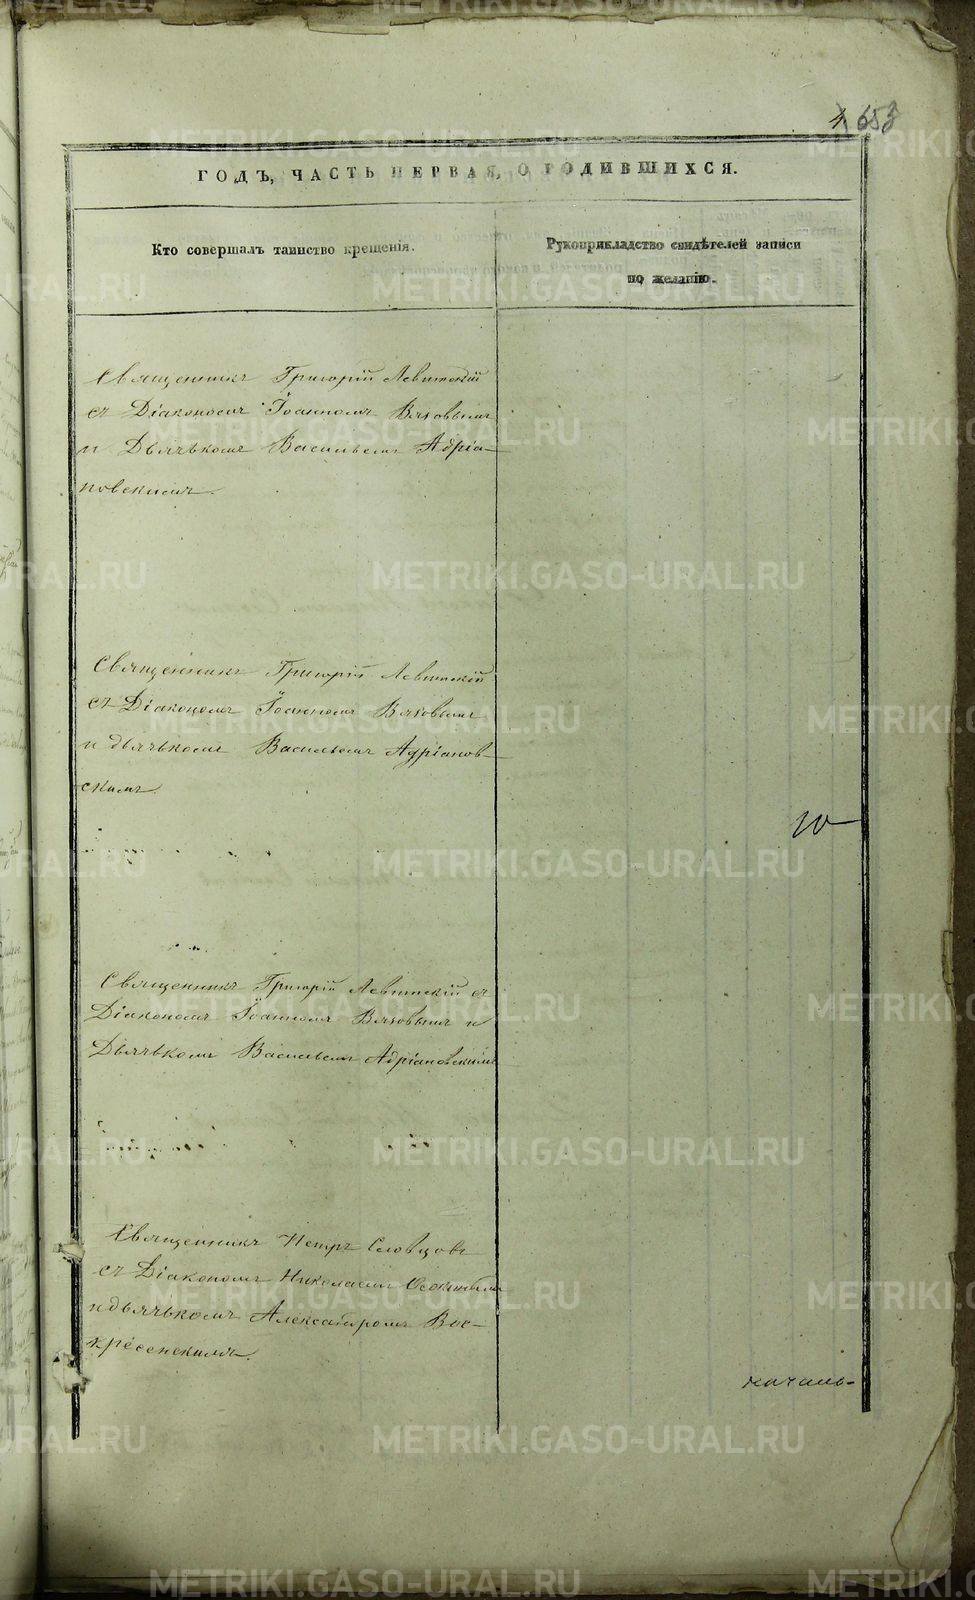 653
ГОДЪ, ЧАСТЬ ПЕРВАЯ, О РОДИВШИХСЯ.
Кто совершалъ таинство крещенія.
Рукоприкладство свидѣтелей записи
по желанію.
Священникъ Григорій Левитскій
съ Діакономъ Іоанномъ Вязовымъ
и Дьячькомъ Васильемъ Адріа-
новскимъ.
Священникъ Григорій Левитскій
съ Діакономъ Іоанномъ Вязовымъ
и дьячькомъ Васильемъ Адріанов-
скимъ.
Священникъ Григорій Левитскій съ
Діакономъ Іоанномъ Вязовымъ и
Дьячькомъ Васильемъ Адріановскимъ
Священникъ Петръ Словцовъ
съ Діакономъ Николаемъ
и дьячькомъ Александромъ Вос-
кресенскимъ.
METRIKI.GASO-URAL.RU